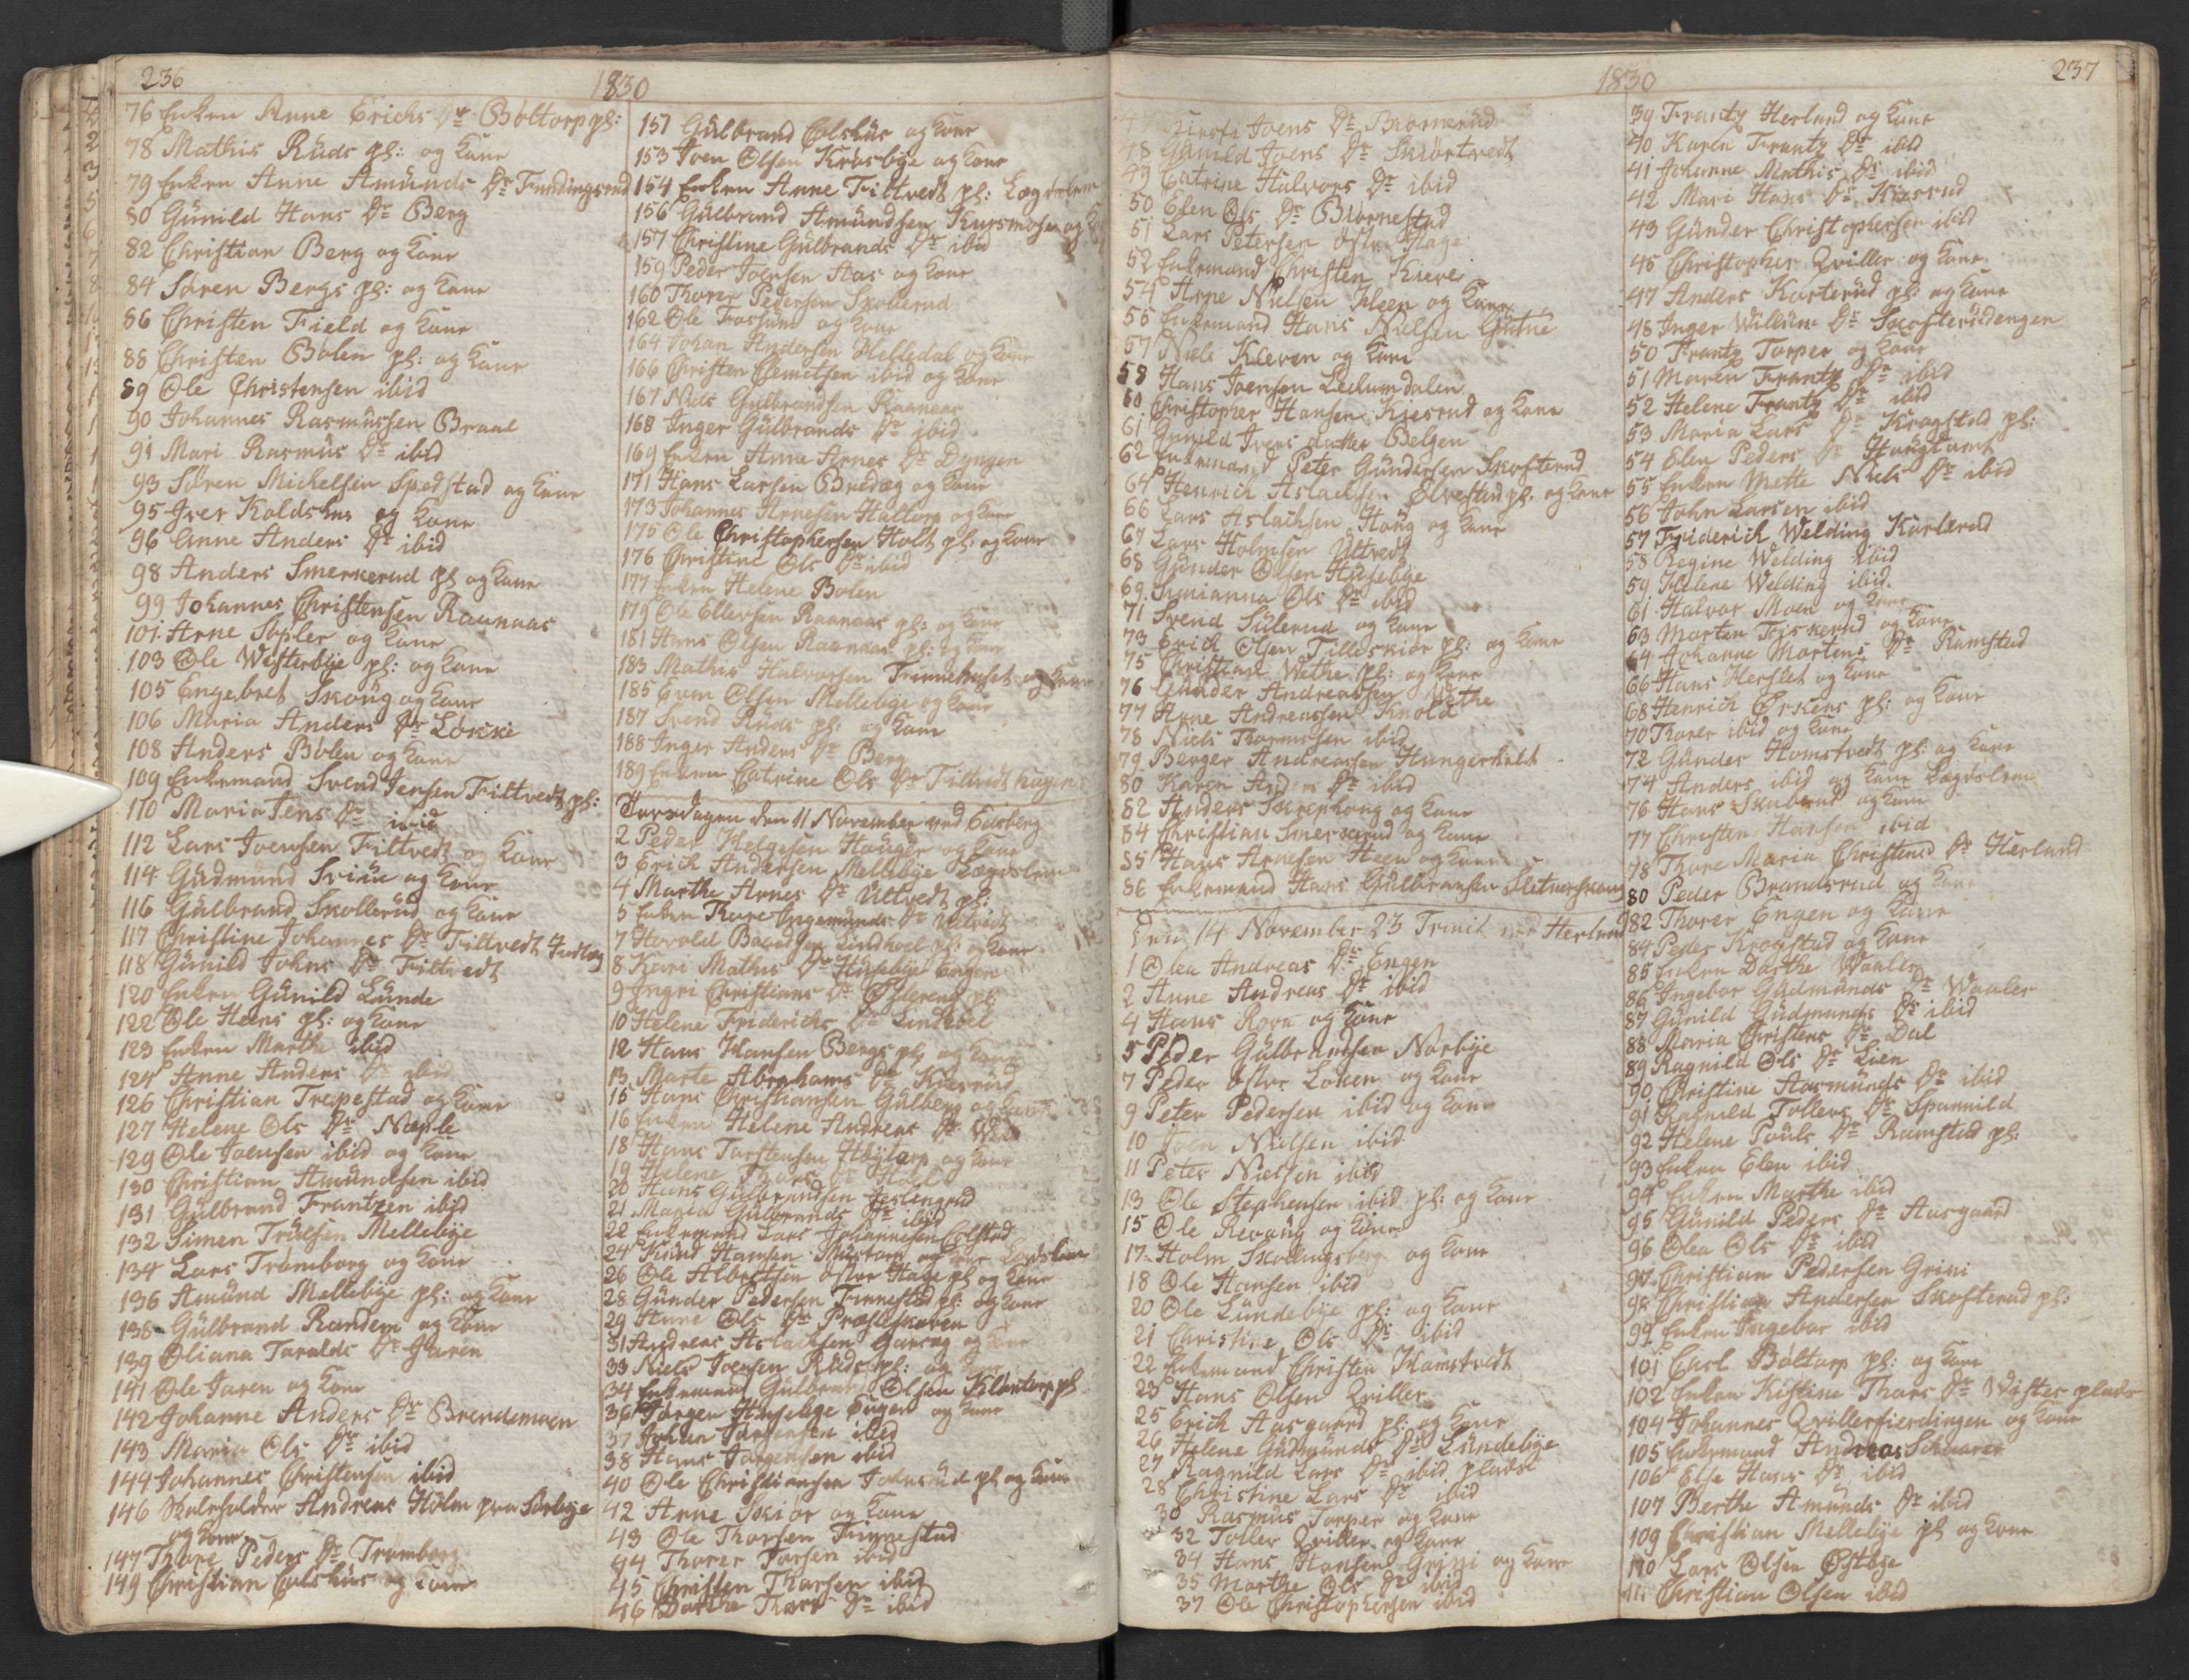 236
1830
76 Enken Anne Erichs Dr Bøltorp pl:
78 Mathis Ruds pl: og Kone
79 Enken Anne Amunds Dr Fundingsrud
80 Gunild Hans Dr Berg
82 Christian Berg og Kone
84 Søren Bergs pl: og Kone
86 Christen Field og Kone
88 Christen Bolen pl: og Kone
89 Ole Christensen ibid
90 Johannes Rasmussen Braal
91 Mari Rasmus Dr ibid
93 Søren Michelsen Spedstad og Kone
95 Iver Koldshus og Kone
96 Anne Anders Dr ibid
98 Anders Smerkerud pl og Kone
99 Johannes Christensen Raanaas
101 Arne Sapler og Kone
103 Ole Westerbye pl: og Kone
105 Engebret Skoug og Kone
106 Maria Anders Dr Løkke
108 Anders Bølen og Kone
109 Enkemand Svend Jensen Filtvedt pl:
110 Maria Jens Dr ibid
112 Lars Joensen Filtvedt og Kone
114 Gudmund og Kone
116 Gulbrand Skollerud og Kone
117 Christine Johannes Dr Filtvedt
118 Gunild Johns Dr Filtvedt
120 Enken Gunild Lunde
122 Ole Heens pl: og Kone
123 Enken Marthe ibid
124 Anne Anders Dr ibid
126 Christian Trepestad og Kone
127 Helene Ols Dr Næple
129 Ole Joensen ibid og Kone
130 Christian Amundsen ibid
131 Gulbrand Frantzen ibid
132 Simen Truelsen Mellebye
134 Lars Tramborg og Kone
136 Amund Mellebye pl: og Kone
138 Gulbrand Randem og Kone
139 Oliana Taralds Dr Jaren
141 Ole Jaren og Kone
142 Johanne Anders Dr Brendemoen
143 Maria Ols Dr ibid
144 Johannes Christensen ibid
146 Skoleholder Andreas Holm paa Sørbye
og Kone
147 Thore Peders Dr Tramborg
149 Christian Colshus og Kone
151 Gulbrand Colshus og Kone
153 Joen Olsen Krosbye og Kone
154 Enken Anne Filtvedt pl: Lægdslem
156 Gulbrand Amundsen Kursmosen og
157 Christine Gulbrands Dr ibid
159 Peder Joensen Aas og Kone
160 Thorer Pedersen Skollerud
162 Ole Fossum og Kone
164 Johan Andersen Helledal og Kone
166 Christen Clemetsen ibid og Kone
167 Niels Gulbrandsen Raanaas
168 Inger Gulbrands Dr ibid
169 Enken Anne Arnes Dr Dyngen
171 Hans Larsen Bredeg og Kone
173 Johannes Arnesen Haltorp og Kone
175 Ole Christophersen Holt pl: og Kone
176 Christine Ols Dr ibid
177 Enken Helene Bolen
179 Ole Ellevsen Raanaas pl: og Kone
181 Hans Olsen Raanaas pl: og Kone
183 Mathis Halvorsen Trinnehuset og Kone
185 Even Olsen Mellebye og Kone
187 Svend Ruds pl: og Kone
188 Inger Anders Dr Berg
189 Enken Catrine Ols Dr Filtvedt hagen
Torsdagen den 11 November ved Eidsberg
2 Peder Helgesen Haugor og Kone
3 Erich Andersen Mellebye Lægdslem
4 Marthe Arnes Dr Ultvedt pl:
5 Enken Thore Ingemunds Dr Ultvedt
7 Harald Lindhoel pl: og Kone
8 Kari Mathis Dr Husebye Engen
9 Ingri Christians Dr Østereng pl:
10 Helene Friderichs Dr Lindhoel
12 Hans Hansen Bergs pl: og Kone
13 Marte Abrahams Dr Kiesrud
15 Hans Christiansen Gulberg og Kone
16 Enken Helene Andreas Dr
18 Hans Torstensen Høytorp og Kone
19 Helene Thors Dr Holt
20 Hans Gulbrandsen Jeslingrud
21 Maria Gulbrands Dr ibid
22 Enkemand Lars Johannesen Colstad
24 Knud Hansen og Kone Lægdslem
26 Ole Albertsen østre Hage pl og Kone
28 Gunder Pedersen Finnestad pl: og Kone
29 Anne Ols Dr Præsteskoven
31 Andreas Aslachsen og Kone
33 Niels Joensen Ruds pl: og Kone
34 Enkemand Gulbran Olsen Klontorp pl
36 Jørgen Husebye Engen og Kone
37 Johan Jørgensen ibid
38 Hans Jørgensen ibid
40 Ole Christiansen pl og Kone
42 Arne Skiør og Kone
43 Ole Thorsen Finnestad
44 Thorer Torsen ibid
45 Christen Thorsen ibid
46 Dorthe Thors Dr ibid
1830
237
47 Kirsti Joens Dr Biørnerud
48 Gunild Joens Dr Skiørtvedt
49 Catrine Halvors Dr ibid
50 Elen Ols Dr Biørnestad
51 Lars Petersen østre Hage
52 Enkemand Christen Kiere
54 Arne Nielsen Heen og Kone
56 Enkemand Hans Nielsen Gutue
57 Niels Kleven og Kone
58 Hans Joensen Leckumdalen
60 Christopher Hansen Kiesrud og Kone
61 Gunild Ivers datter Belgen
62 Enkemand Peter Gundersen Skofterud
64 Henrich Aslachsen Ølvestad pl: og Kone
66 Lars Aslachsen Houg og Kone
67 Lars Holmsen Ultvedt
68 Gunder Olsen Husebye
69 Marianna Ols Dr ibid
71 Svend Sulerud og Kone
73 Erich Olsen Tilleskiør pl: og Kone
75 Christian Wethe pl: og Kone
76 Gunder Andreassen Wethe
77 Arne Andreassen Knold
78 Niels Thoresen ibid
79 Berger Andreassen Hungerholt
80 Karen Anders Dr ibid
82 Anders Skrephoug og Kone
84 Christian Smerkerud og Kone
85 Hans Arnesen Heen og Kone
86 Enkemand Hans Gulbransen Slitneskoug
Den 14 November 23 Trinit ved Herland
1 Olea Andreas Dr Engen
2 Anne Andreas Dr ibid
4 Hans Rova og Kone
5 Peder Gulbrandsen Norbye
7 Peder østre Loken og Kone
9 Peter Pedersen ibid og Kone
10 Joen Nielsen ibid
11 Peter Nielsen ibid
13 Ole Stephensen ibid pl: og Kone
15 Ole Revoug og Kone
17 Holm Skollingsberg og Kone
18 Ole Hansen ibid
20 Ole Lundebye pl: og Kone
21 Christine Ols Dr ibid
22 Enkemand Christen Homstvedt
23 Hans Olsen Qviller
25 Erich Aasgaard pl: og Kone
26 Helene Gudmunds Dr Lundebye
27 Ragnild Lars Dr ibid plads
28 Christine Lars Dr ibid
30 Rasmus Torper og Kone
32 Toller Qviller og Kone
34 Hans Hansen Grini og Kone
35 Marthe Ols Dr ibid
37 Ole Christophersen ibid
39 Frantz Herland og Kone
40 Karen Frantz Dr ibid
41 Johanne Mathis Dr ibid
42 Mari Hans Dr Kiesrud
43 Gunder Christophersen ibid
45 Christopher Qviller og Kone
47 Anders Korterud pl: og Kone
48 Inger Willum Dr Skofterudengen
50 Frantz Torper og Kone
51 Maren Frantz Dr ibid
52 Helene Frantz Dr ibid
53 Maria Lars Dr Kragstad pl:
54 Elen Peders Dr Haugtomt
55 Enken Mette Niels Dr ibid
56 John Larsen ibid
57 Friderich Welding Karlsrud
58 Regine Welding ibid
59 Helene Welding ibid
61 Halvor Moen og Kone
63 Morten Friskerud og Kone
64 Johanne Mortens Dr Ramstad
66 Hans Herslet og Kone
68 Henrich Ørskens pl: og Kone
70 Thorer ibid og Kone
72 Gunder Homstvedt pl: og Kone
74 Anders ibid og Kone Lægdslem
76 Hans Skuberud og Kone
77 Christen Hansen ibid
78 Thore Maria Christens Dr Herland
80 Peder Brandsrud og Kone
82 Thorer Engen og Kone
84 Peder Krogstad og Kone
85 Enken Dorthe Waaler
86 Ingebor Gudmunds Dr Waaler
87 Gunild Gudmunds Dr ibid
88 Maria Christens Dr Dal
89 Ragnild Ols Dr Lien
90 Christine Aasmunds Dr ibid
91 Ragnild Tollers Dr Spannild
92 Helene Pouls Dr Ramstad pl:
93 Enken Elen ibid
94 Enken Marthe ibid
95 Gunild Peders Dr Aasgaard
96 Olea Ols Dr ibid
97 Christian Pedersen Grini
98 Christian Andersen Skofterud pl:
99 Enken Ingebor ibid
101 Carl Bøltorp pl: og Kone
102 Enken Kistine Thors Dr Wister plads
104 Johannes Qvillerfierdingen og Kone
105 Enkemand Andreas Schuarer
106 Else Hans Dr ibid
107 Berthe Amunds Dr ibid
109 Christian Mellebye pl og Kone
110 Lars Olsen Østbye
111 Christian Olsen ibid